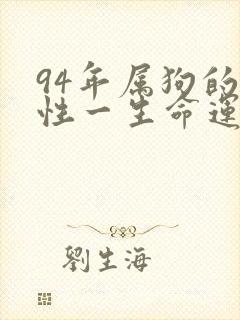 94年属狗的
性一生命運
劉生海